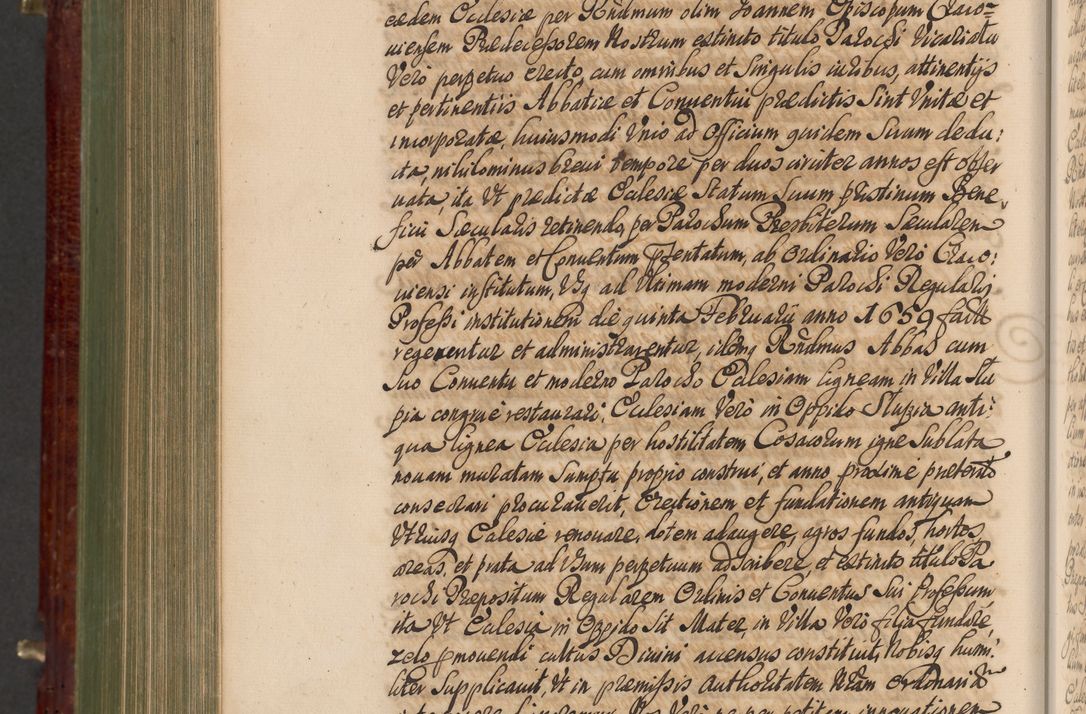 eædem Ecclesiæ per Rñdmum olim Joannem Episcopum Craco=
uiensem Prædecessorem Nostrum extincto titulo Parochi Vicariatu
Vero perpetuo erecto, cum omnibus et Singulis iuribus, attinentijs
et pertinentiis Abbatiæ et Conuentui prædictis Sint Vnitæ et
incorporatæ, huiusmodi Vnio ad Officium quidem Suum dedu:
cta, nihilominus breui tempore per duos circiter annos est obser
uata, ita Vt prædictæ Ecclesiæ Statum Suum pristinum Bene,
ficii Sæcularis retinendo, per Parochum Presbiterum Sæcularem
per Abbatem et Conuentum pñtentatum, ab Ordinario Vero Craco:
uiensi institutum, Vsq ad Vltimam moderni Parochi Regularis
Professi institutionem die quinta Februarij anno 1659 factã
regerentur et administrarentur, idemq Rñdmus Abbas cum
Suo Conuentu et moderno Parocho Ecclesiam ligneam in Villa Stu
pia congrue restaurari, Ecclesiam Vero in Oppido Stupia anti:
qua lignea Ecclesia per hostilitatem Cosacorum igne Sublata
nouam muratam Sumptu proprio construi, et anno proxime præterito
consecrari procurauerit, Erectionem et fundationem antiquam
Vtriusq Ecclesiæ renouare, dotem adaugere, agros fundos, hortos,
areas, et prata ad Vsum perpetuum adscribere, et extincto titulo Pa
rochi Præpositum Regularem Ordinis et Conuentus Sui professum
ita Vt Ecclesia in Oppido Sit Mater, in Villa Vero filia fundare,
zelo pmouendi cultus Diuini accensus constituit, Nobisq humi:
liter Supplicauit, Vt in præmissis Authoritatem Nrãm Ordinariam